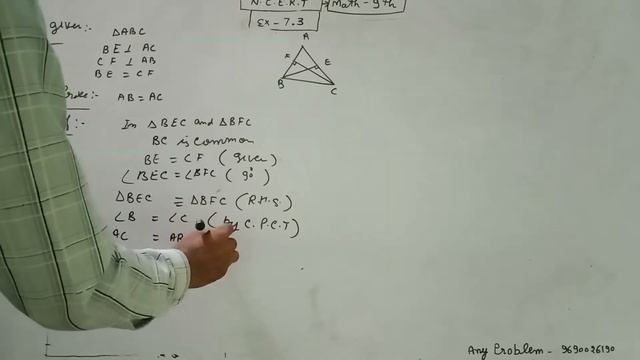 N.C.E.R.T Math - 9th
Ex - 7.3
given:- ΔABC
BE ⊥ AC
CF ⊥ AB
BE = CF
AB = AC
:- In ΔBEC and ΔBFC
BC is common
BE = CF (given)
∠BEC = ∠BFC (90°)
ΔBEC ≅ ΔBFC (R.H.S.)
∠B = ∠C (by C.P.C.T)
AC = AB
A
F E
B
C
Any Problem - 9690026190